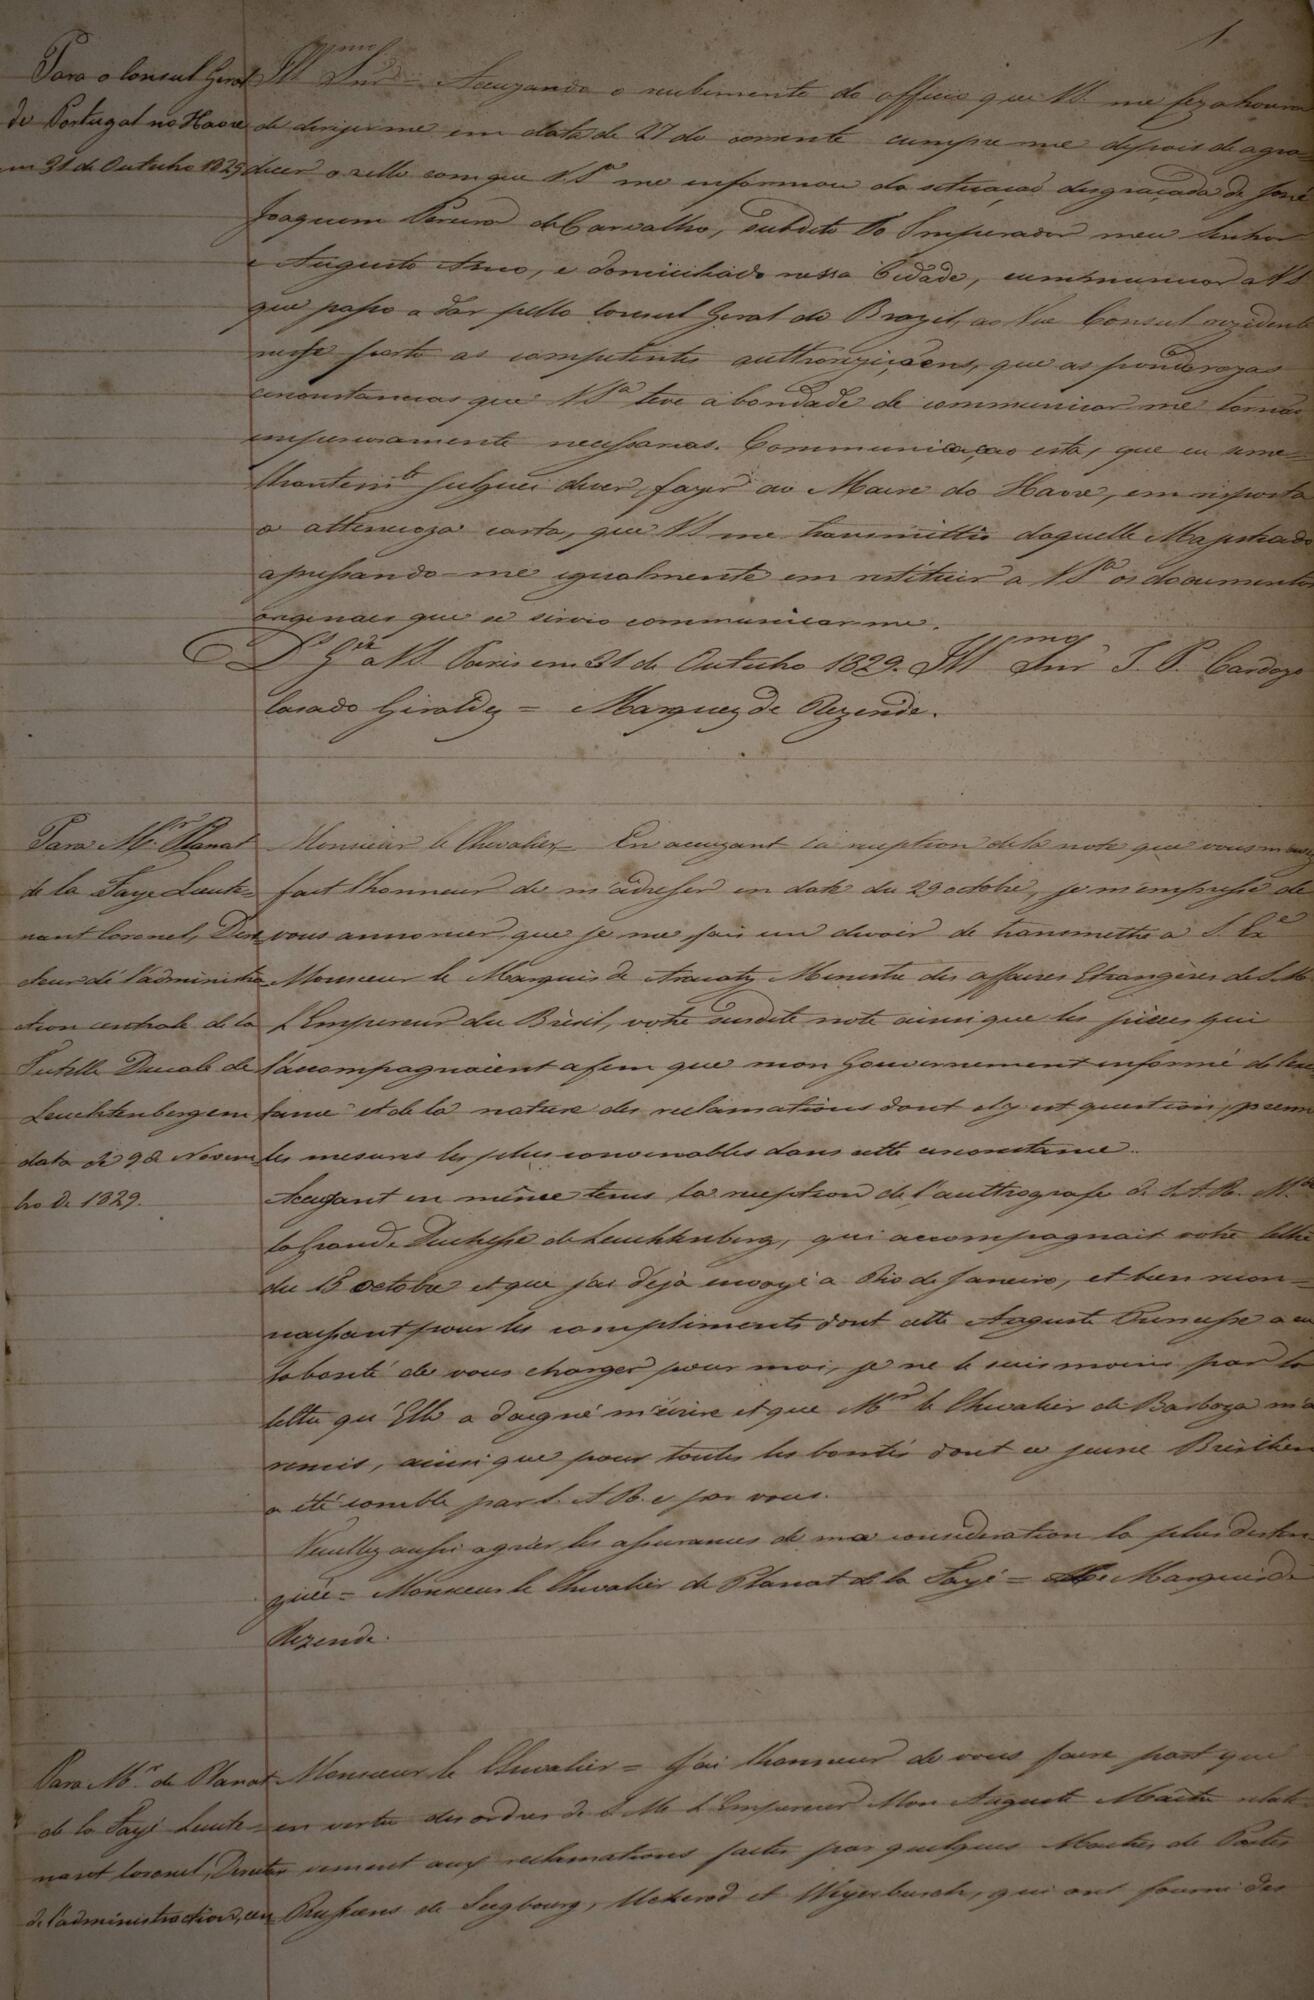 1
Para o Consul Geral
de Portugal no Havre
em 31 de Outubro 1829
Illmo Snr = Accuzando o recebimento do officio que VS. me fez a honra
de dirijir me em data de 27 do corrente cumpre me depois de agra-
decer o zello com que VSa me informou da situação desgraçada de José
Joaquim Pereira de Carvalho, subdito do Imperador meu Senhor
e Augusto Amo, e domiciliado nessa Cidade, communicar a VS
que passo a dar pello Consul Geral do Brazil, ao Vice Consul rezidente
nesse porto as competentes authorizaçoens, que as ponderozas
circonstancias que VSa teve a bondade de communicar me tornão
imperiozamente necessarias. Communicação esta, que eu seme-
lhantemte julguei dever fazer ao Maire do Havre, em resposta
a attencioza carta, que VS me transmittio daquelle Magistrado
apressando-me igualmente em restituir a VSa os documentos
originaes que se servio communicar me.
Ds Gde a VS. Paris em 31 de Outubro 1829. Illmo Snr J. P. Cardozo
Cazado Giraldez = Marquez de Rezende.
Para Mr. Planat
de la Faye Lieute=
nant Coronel, Dire
cteur de l'administra
tion centrale de la
Tutelle Ducale de
Leuchtenberg em
data de 9 de Novem
bro de 1829.
Monsieur le Chevalier = En accuzant la reception de la note que vous m'avez
fait l'honneur de m'adresser en date du 29 octobre, je m'empresse de
vous annoncer que je me fais un devoir de transmettre a S. Exe
Monsieur le Marquis de Aracaty Ministre des affaires Etrangères de S. M
L'Empereur du Brèsil, votre susdite note ainsi que les pièces qui
l'accompagnaient afin que mon Gouvernement informé de l'exis
tance et de la nature des reclamations dont il y est question, prenne
les mesures les plus convenables dans cette circonstance.
Accusant en même tems la reception de l'authografe de S. A. R. Me
la Grande Duchesse de Leuchtenberg, qui accompagnait votre lettre
du 15 octobre et que j'ai déjà envoyé a Rio de Janeiro, et bien recon=
naissant pour les compliments dont cette Auguste Princesse a eu
la bonté de vous charger pour moi, je ne le suis moins par la
lettre qu'Elle a daigné m'écrire et que Mr le Chevalier de Barboza m'a
remis, ainsi que pour toutes les bontés dont ce jeune Brèsilien
a été comblé par S. A. R. e par vous.
Veuillez aussi agréer les assurances de ma consideration la plus distin
guée = Monsieur le Chevalier de Planat de la Fayé = Le Marquis de
Rezende.
Para Mr. de Planat
de la Fayé Lieute=
nant Coronel, Director
de l'administration, em
Monsieur le Chevalier = J'ai l'honneur de vous faire part que
en vertu des ordres de S. M. L'Empereur Mon Auguste Maître relati
vement aux reclamations faites par quelques Maîtres de Postes
Prussiens de Siegbourg, Uckerad et Weyerbusch, qui ont fourni des